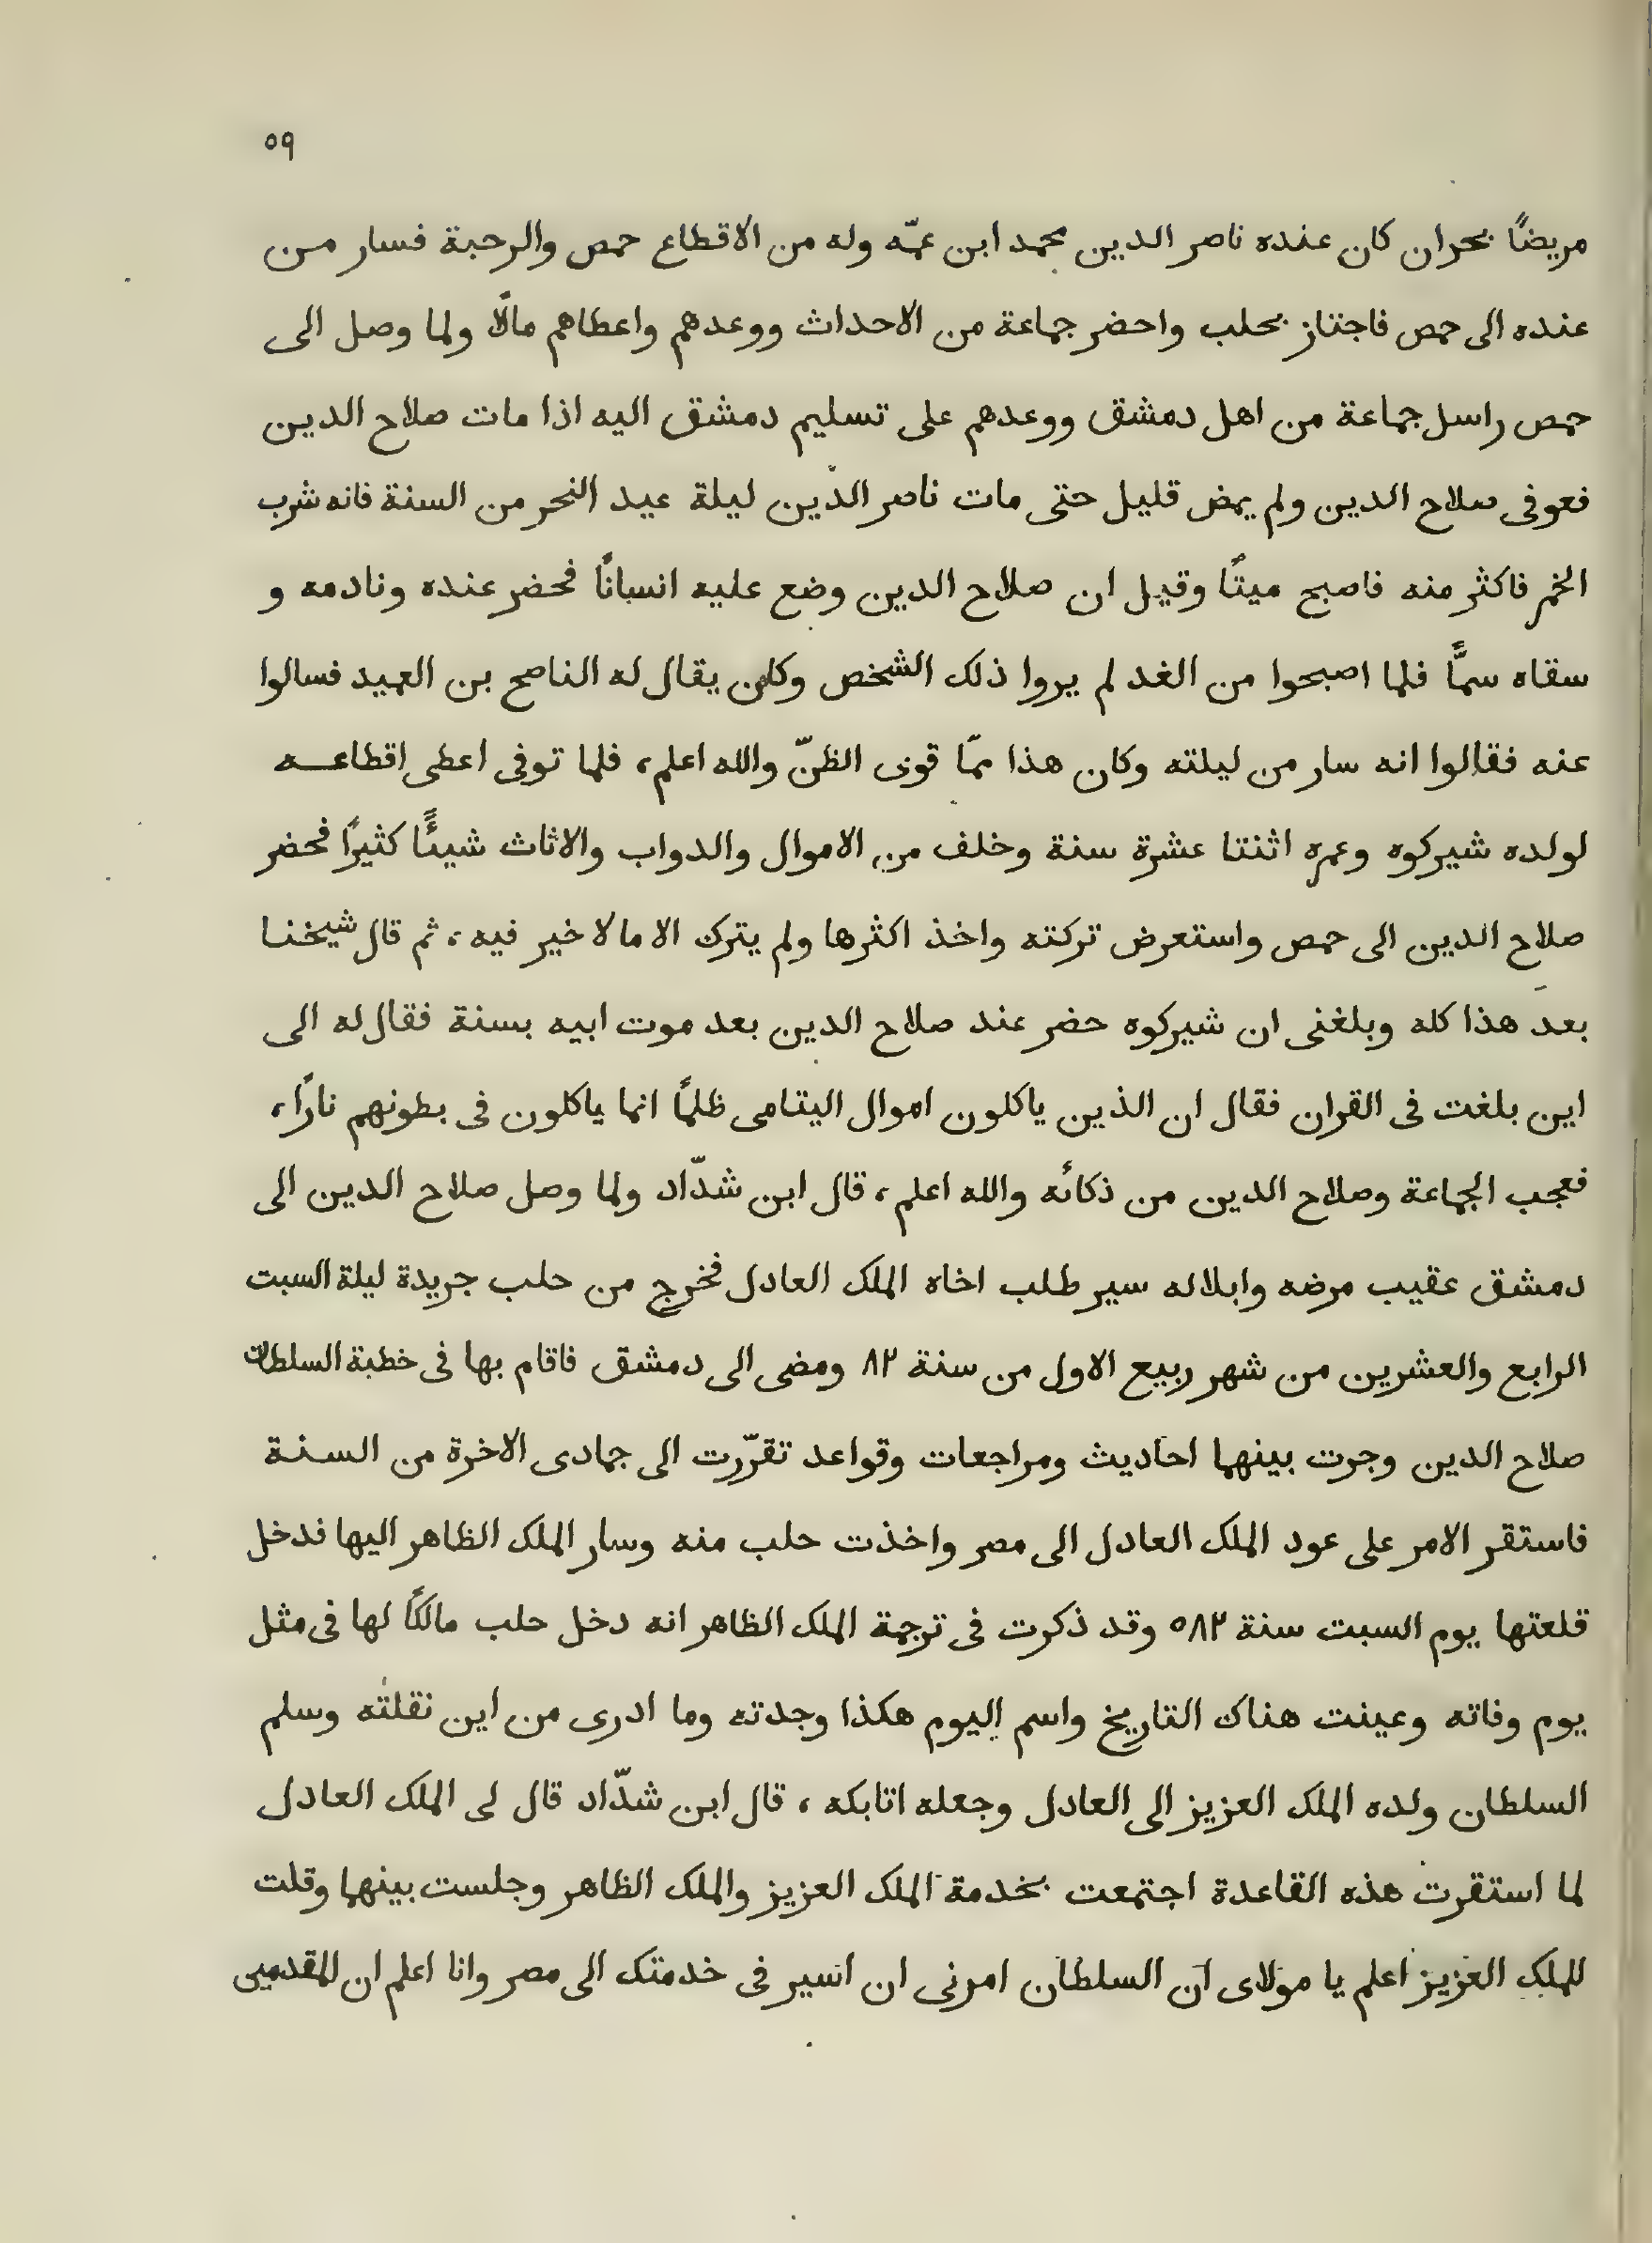 ٥٩
مريضًا بحران كان عنده ناصر الدين محمد ابن عمّه وله من الاقطاع حمص والرحبة فسار من
عنده الى حمص فاجتاز بحلب واحضر جماعة من الاحداث ووعدهم واعطاهم مالًا ولما وصل الى
حمص راسل جماعة من اهل دمشق ووعدهم على تسليم دمشق اليه اذا مات صلاح الدين
فعوفى صلاح الدين ولم يمض قليل حتى مات ناصر الدين ليلة عيد النحر من السنة فانه شرب
الخمر فاكثر منه فاصبح ميتًا وقيل ان صلاح الدين وضع عليه انسانًا فحضر عنده ونادمه و
سقاه سمًّا فلما اصبحوا من الغد لم يروا ذلك الشخص وكان يقال له الناصح بن العميد فسالوا
عنه فقالوا انه سار من ليلته وكان هذا ممّا قوى الظنّ والله اعلم، فلما توفى اعطى اقطاعه
لولده شيركوه وعمره اثنتا عشرة سنة وخلف من الاموال والدواب والاثاث شيئًا كثيرًا فحضر
صلاح الدين الى حمص واستعرض تركته واخذ اكثرها ولم يترك الا مالا خير فيه، ثم قال شيخنا
بعد هذا كله وبلغنى ان شيركوه حضر عند صلاح الدين بعد موت ابيه بسنة فقال له الى
اين بلغت فى القران فقال ان الذين ياكلون اموال اليتامى ظلمًا انما ياكلون فى بطونهم نارًا،
فعجب الجماعة وصلاح الدين من ذكائه والله اعلم، قال ابن شدّاد ولما وصل صلاح الدين الى
دمشق عقيب مرضه وابلاله سير طلب اخاه الملك العادل فخرج من حلب جريدة ليلة السبت
الرابع والعشرين من شهر ربيع الاول من سنة ٨٢ ومضى الى دمشق فاقام بها فى خطبة السلطان
صلاح الدين وجرت بينهما احاديث ومراجعات وقواعد تقرّرت الى جمادى الاخرة من السنة
فاستقر الامر على عود الملك العادل الى مصر واخذت حلب منه وسار الملك الظاهر اليها فدخل
قلعتها يوم السبت سنة ٥٨٢ وقد ذكرت فى ترجمة الملك الظاهر انه دخل حلب مالكًا لها فى مثل
يوم وفاته وعينت هناك التاريخ واسم اليوم هكذا وجدته وما ادرى من اين نقلته وسلم
السلطان ولده الملك العزيز الى العادل وجعله اتابكه، قال ابن شدّاد قال لى الملك العادل
لما استقرت هذه القاعدة اجتمعت بخدمة الملك العزيز والملك الظاهر وجلست بينهما وقلت
للملك العزيز اعلم يا مولاى ان السلطان امرنى ان اسير فى خدمتك الى مصر وانا اعلم ان المقدمين